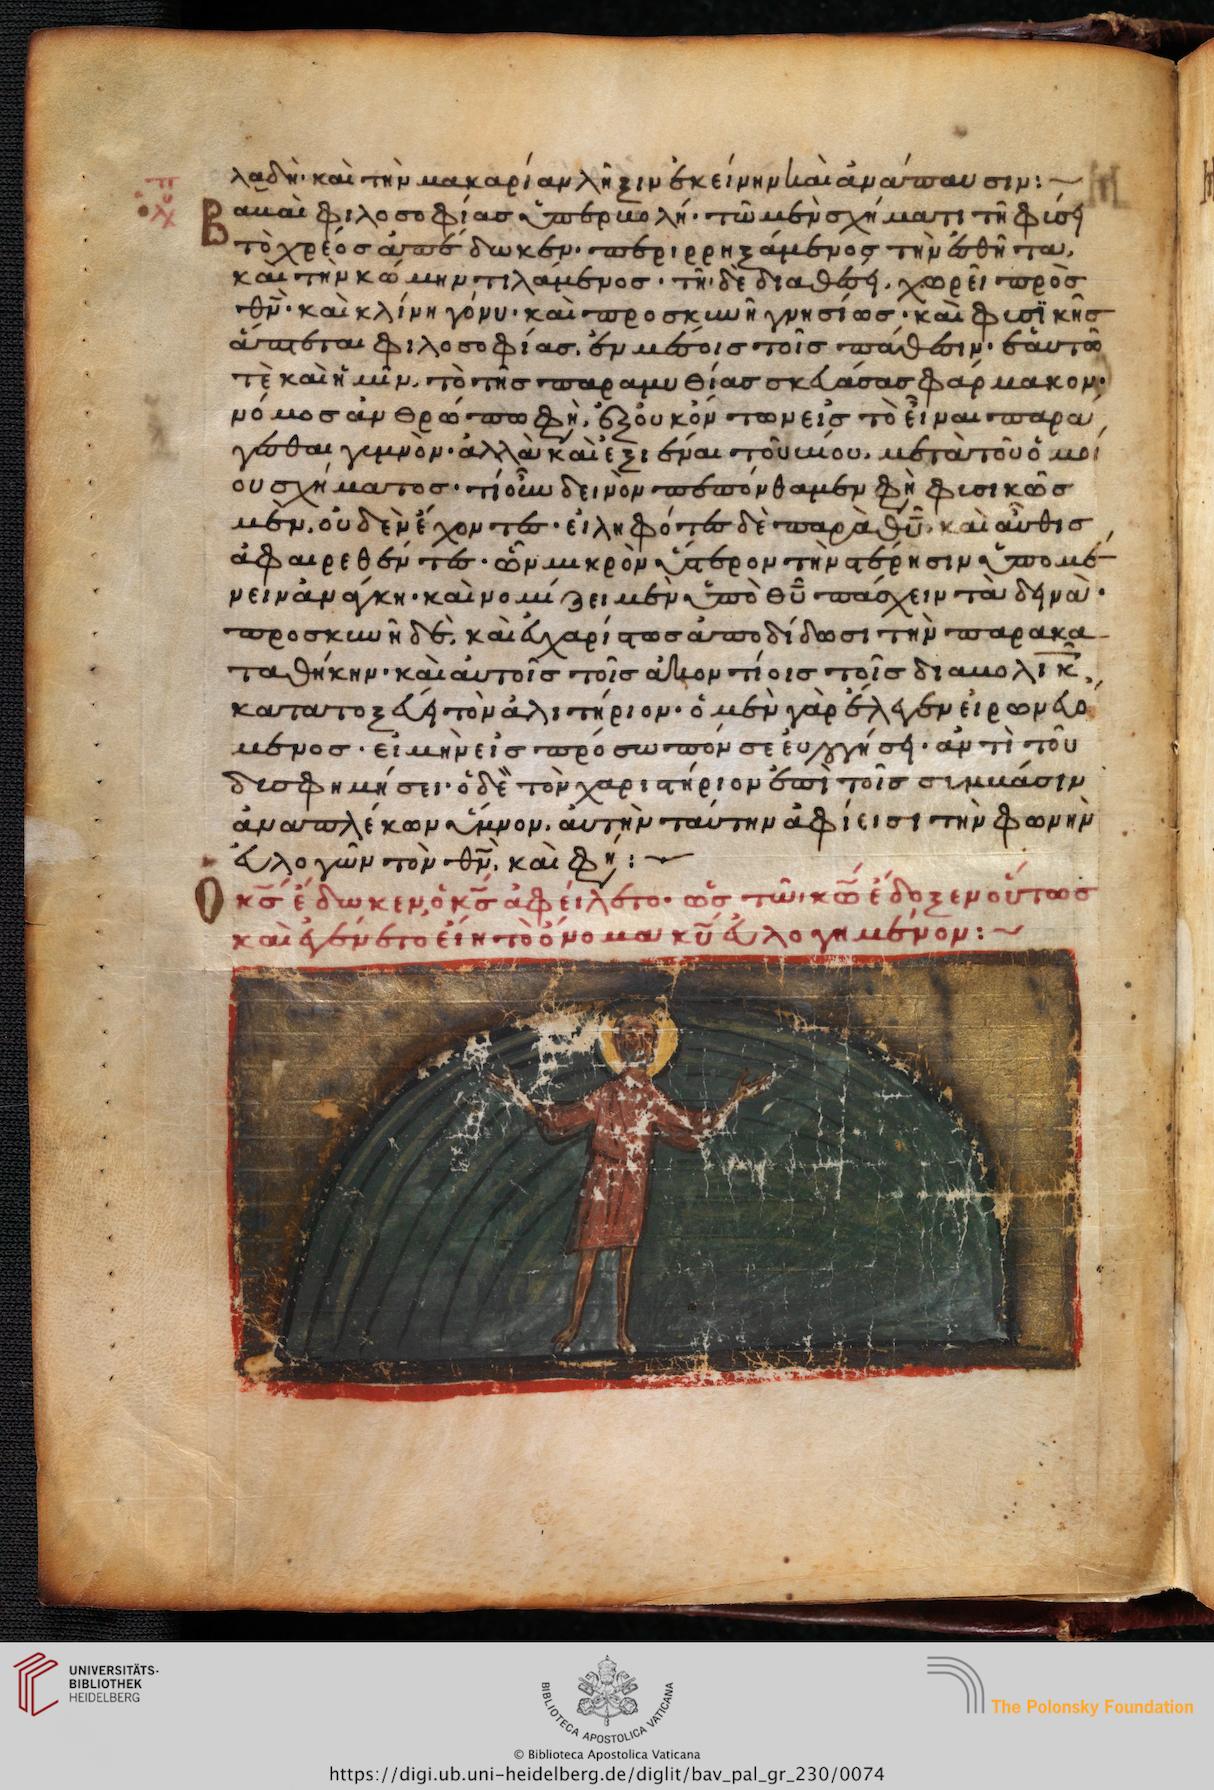 λαδὴ· καὶ τὴν μακαρίαν λῆξιν ἐκείνην καὶ ἀνάπαυσιν:~
πολυχ
Βαβαὶ φιλοσοφίας ὑπερβολή· τῶ μὲν σχήματι τῆ φύσει
τὸ χρέος ἀπέδωκεν· περιρρηξάμενος τὴν ἐσθῆτα,
καὶ τὴν κόμην τιλάμενος· τῆ δὲ διαθέσει, χωρεῖ πρὸς
θν̅· καὶ κλίνη γόνυ· καὶ προσκυνῆ γνησίως· καὶ φυσϊκῆς
ἅπτεται φιλοσοφίας, ἐν μέσοις τοῖς πάθεσιν· ἑαυτῶ
τὲ καὶ ἡμῖν, τὸ τῆς παραμυθίας σκευάσας φάρμακον·
νόμος ἀνθρώπω φὴ, ἐξ οὐκ ὄντων εἰς τὸ εἶναι παρα
γέσθαι γυμνὸν· ἀλλὰ καὶ ἐξιέναι τοῦ βίου, μετὰ τοῦ ὁμοί
ου σχήματος· τί οὖν δεινὸν πεπόνθαμεν φὴ φυσικῶς
μὲν, οὐδὲν ἔχοντες· εἰληφότες δὲ παρὰ θυ̅, καὶ αὖθις
ἀφαιρεθέντες· ὧν μικρὸν ὕστερον τὴν στέρησιν ὑπομέ
νειν ἀνάγκη· καὶ νομίζει μὲν ὑπὸ θυ̅ πάσχειν τὰ δεινὰ·
προσκυνῆ δὲ, καὶ εὐχαρίστως ἀποδίδωσι τὴν παρακα
ταθήκην· καὶ αὐτοῖς τοῖς ἀκοντίοις τοῖς διαβολικ
κατατοξεύει τὸν ἀλιτήριον· ὁ μὲν γὰρ ἔλεγεν εἰρωνευό
μενος· εἰ μὴν εἰς πρόσωπόν σε εὐλογήσει· ἀντὶ τοῦ
δυσφημήσει· ὁ δὲ τὸν χαριστήριον ἐπὶ τοῖς συμβάσιν
ἀναπλέκων ὕμνον, αὐτὴν ταύτην ἀφίεισι τὴν φωνὴν
εὐλογῶν τὸν θν̅, καὶ φή:~
Ὁ κς̅ ἔδωκεν, ὁ κς̅ ἀφείλετο· ὡς τῶ κω̅ ἔδοξεν οὕτως
καὶ ἐγένετο εἴη τὸ ὄνομα κυ̅ εὐλογημένον:~
UNIVERSITÄTS-
BIBLIOTHEK
HEIDELBERG
BIBLIOTECA APOSTOLICA VATICANA
The Polonsky Foundation
© Biblioteca Apostolica Vaticana
https://digi.ub.uni-heidelberg.de/diglit/bav_pal_gr_230/0074